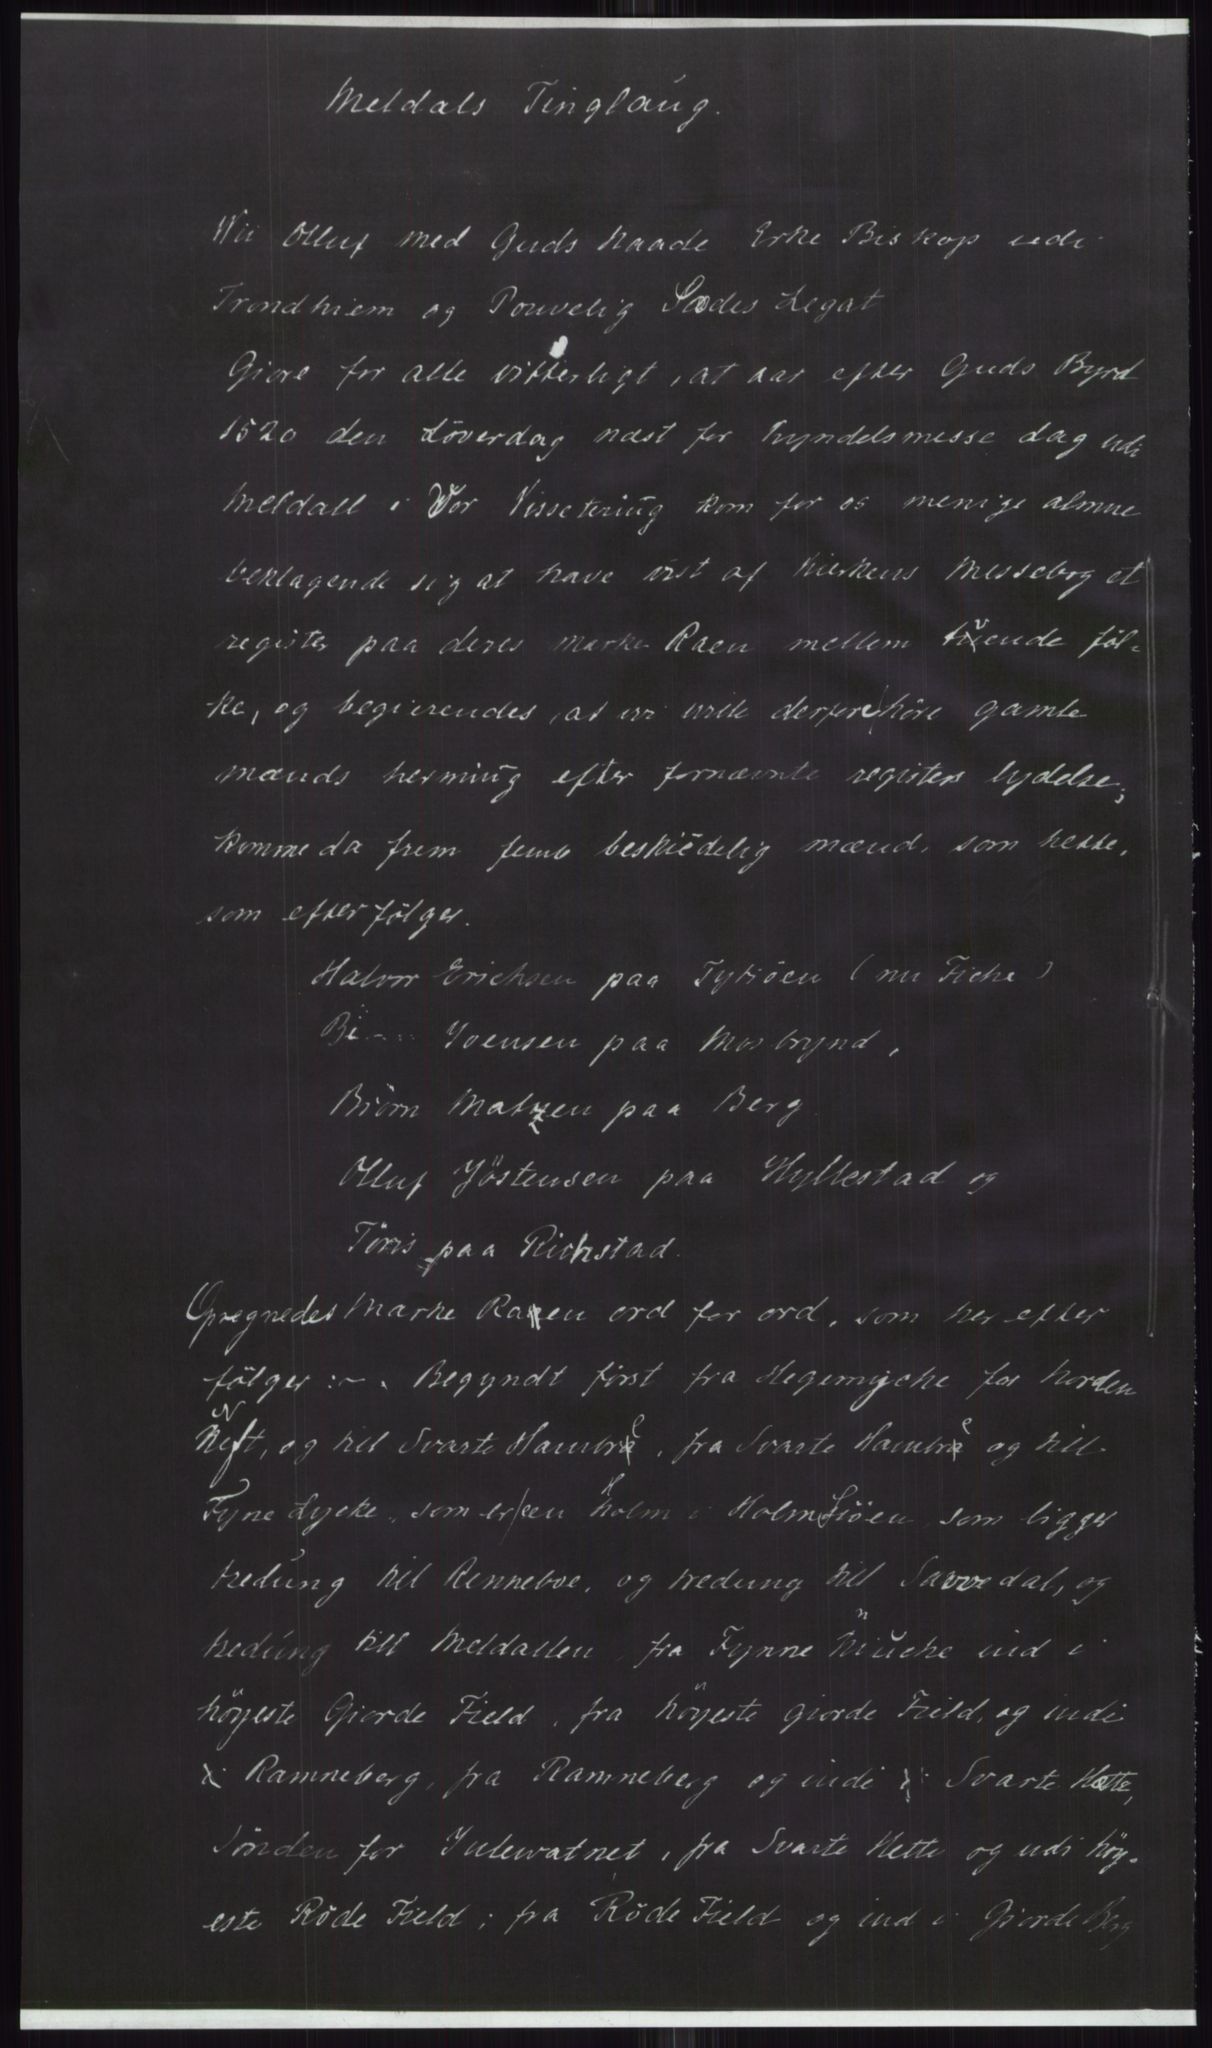 Meldals Tinglaug.
Wii Olluf med Guds Naade Erke Biskop udi
Trondhiem og Pouvelig Sædes Legat
Giøre for alle vitterligt, at aar efter Guds Byrd
1520 den Löverdag næst for Kyndelsmesse dag udi
Meldall i Vor Vissetering kom for os menige almue
beklagende sig at have vist af Kierkens Messebog et
register paa deres Marke Raen mellem tvende föl-
ke, og begierendes, at vi vilde derfore höre gamle
mænds herming efter fornævnte registers lydelse;
komme da frem femb beskiedelig mænd, som hette,
som efterfölger.
Halvor Erichsen paa Tytiöen (nu Fiche)
Bi--- Joensen paa Mosbrynd,
Biörn Matzen paa Berg
Olluf Jöstensen paa Hyllestad og
Töris paa Richstad.
Opregnedes Marke Raen ord for ord, som her efter
fölger :-. Begyndt först fra Hegemyche for Norden
Nyft, og till Svarte Hambre, fra Svarte Hambre og till
Fyne Lycke, som er en Holm i HolmSiöen som ligger
tredung til Renneboe, og tredung till Savvedal, og
tredung till Meldallen, fra Fynne Niuche ind i
höyeste Giorde Field, fra höyeste giorde Field, og indi
Ramneberg, fra Ramneberg og indi Svarte Hette,
Sönden for Julewatnet, fra Svarte Hette og udi höy-
este Röde Field; fra Röde Field og ind i Giorde Berg